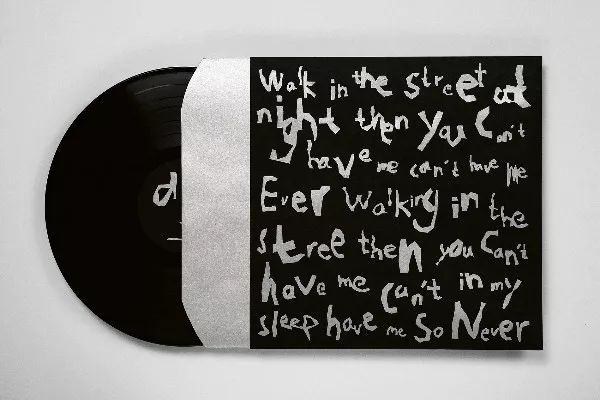 Walk in the street at
night then you Can't
have me can't have me
Ever Walking in the
stree then you Can't
have me can't in my
sleep have me So Never
d